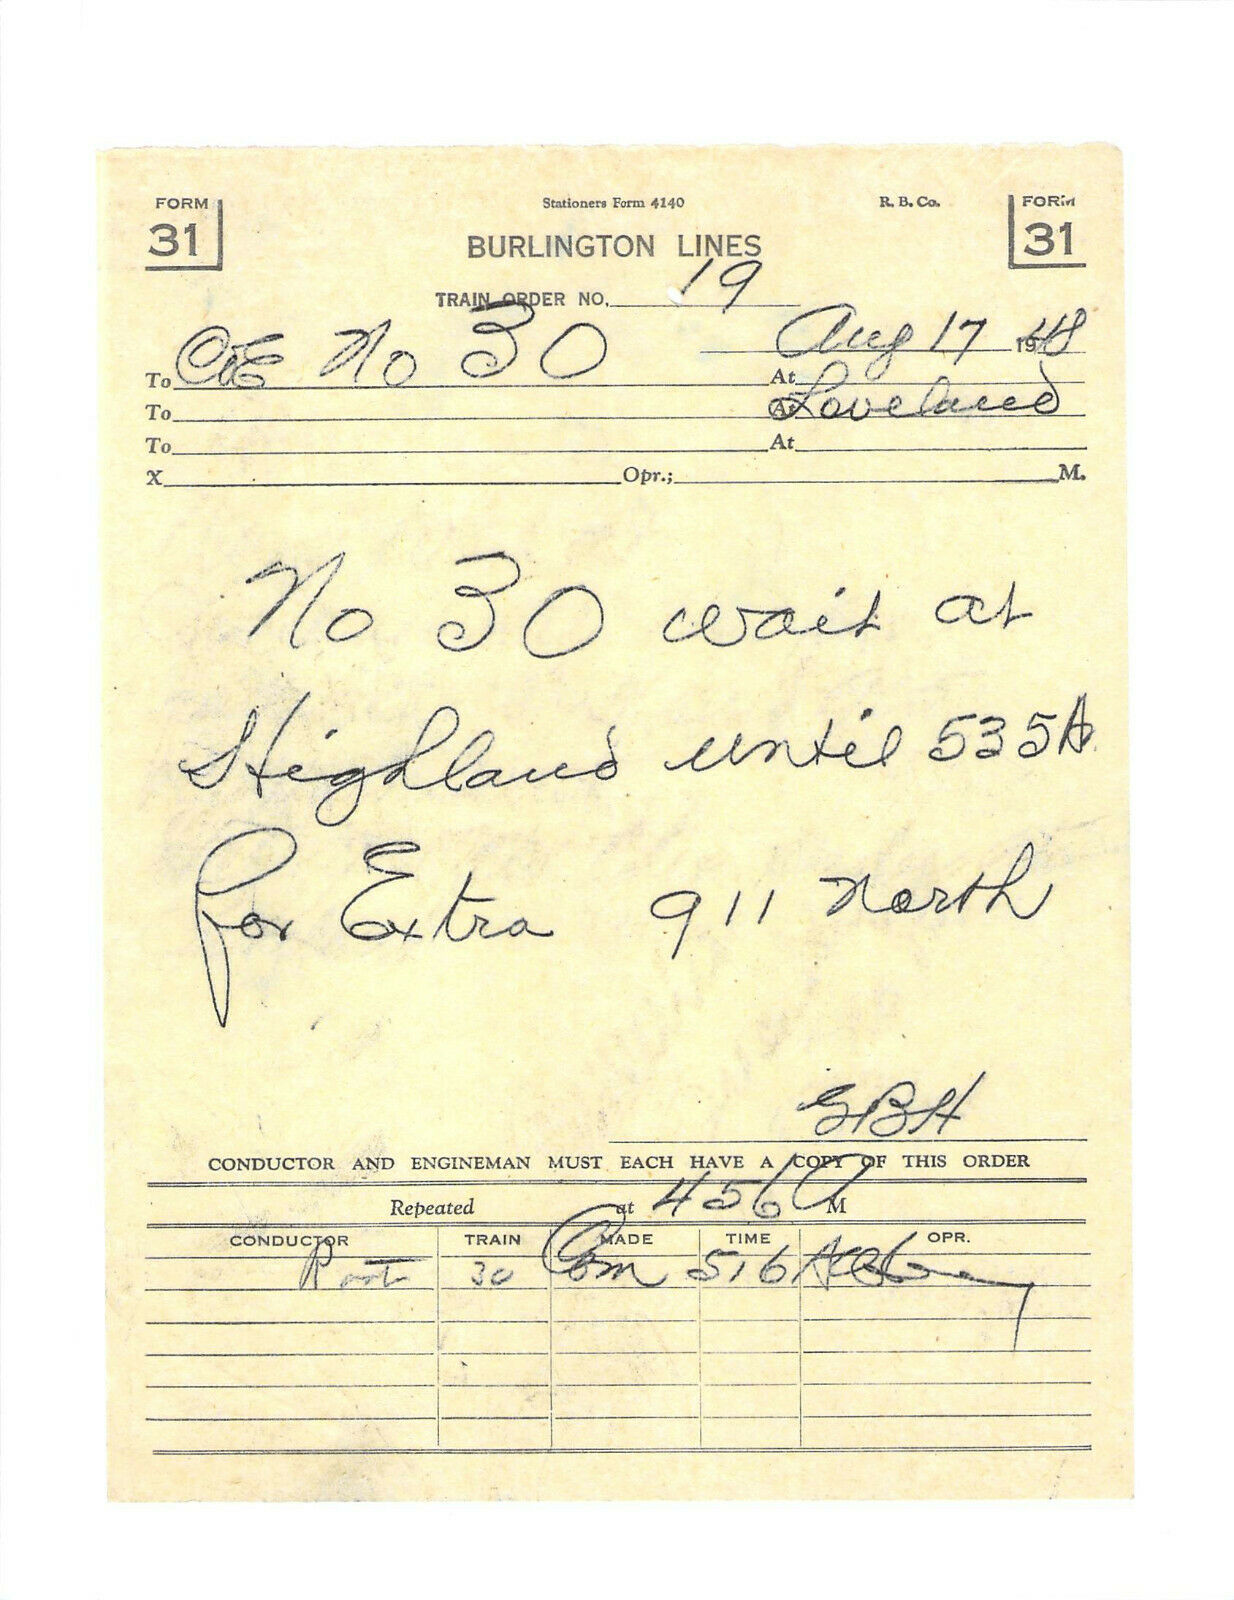 FORM 31
Stationers Form 4140
R. B. Co.
FORM 31
BURLINGTON LINES
TRAIN ORDER NO. 19
Aug 17 1948
To C&E No 30 At
To At Loveland
To At
X Opr.; M.
No 30 wait at
Highland until 535A
for Extra 911 North
GBH
CONDUCTOR AND ENGINEMAN MUST EACH HAVE A COPY OF THIS ORDER
Repeated at 456A M
CONDUCTOR TRAIN MADE TIME OPR.
30 Com 516A